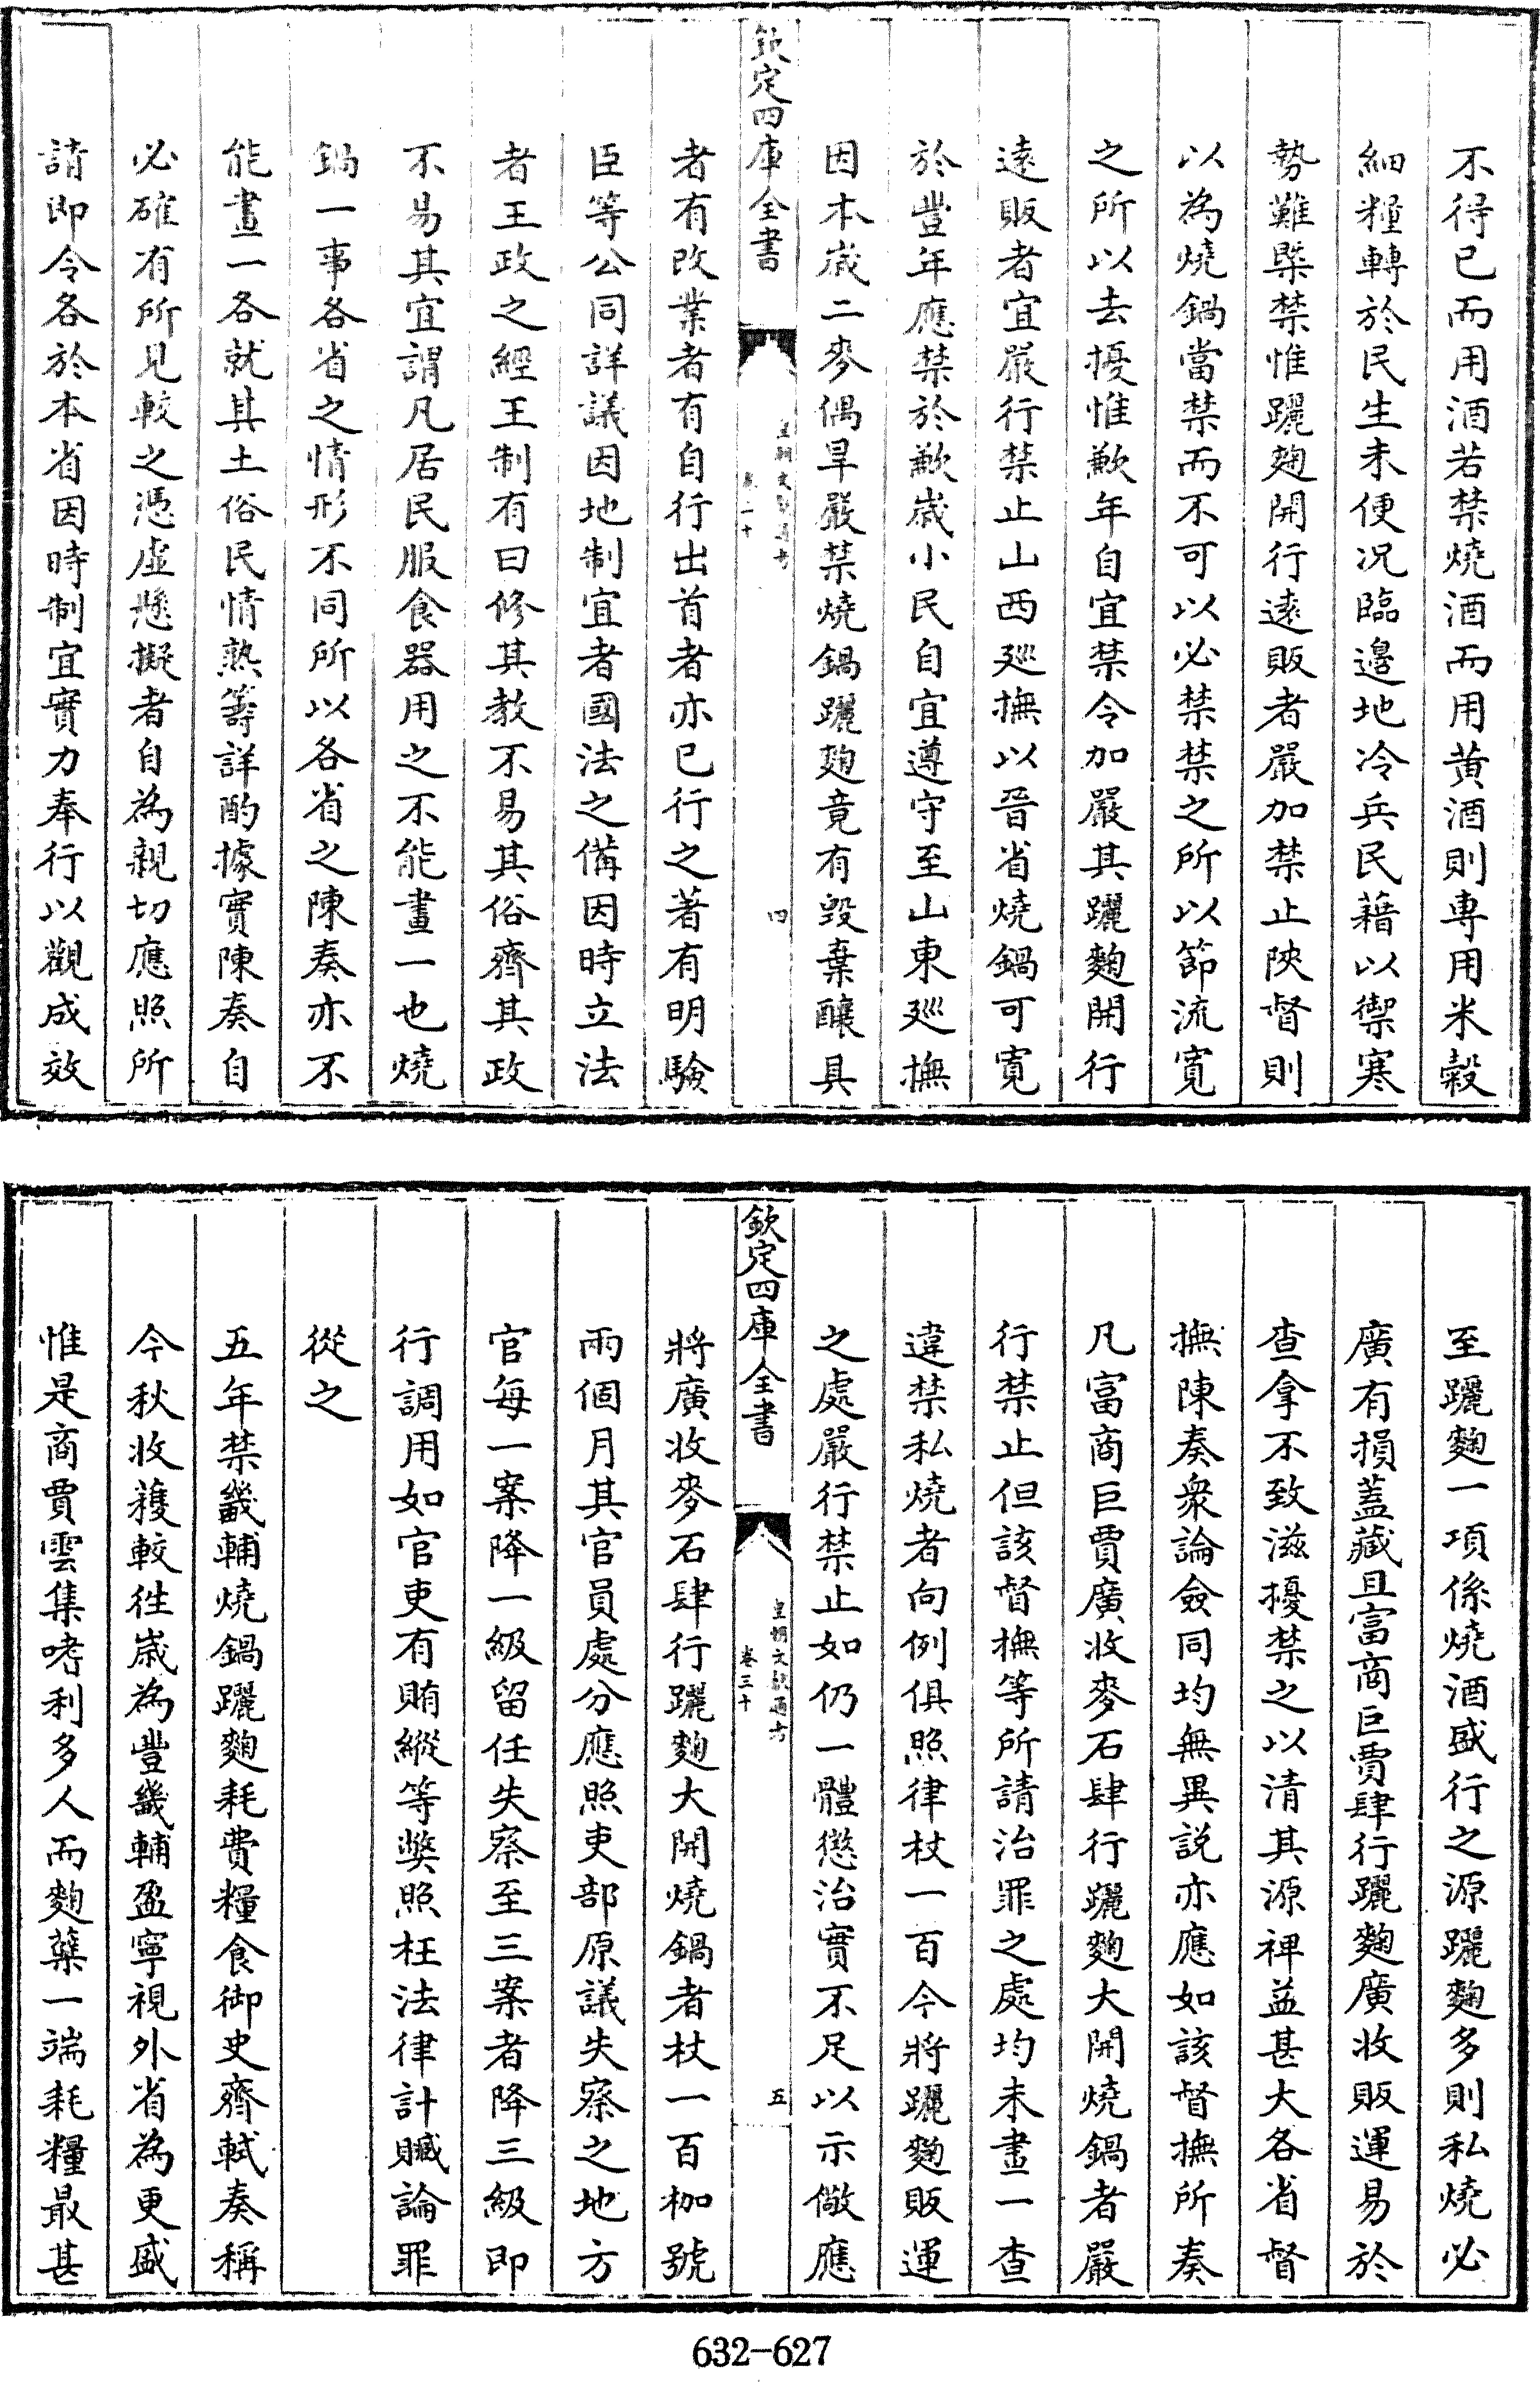 不得已而用酒若禁燒酒而用黄酒則専用米穀
細糧轉於民生未便況臨邉地冷兵民藉以禦寒
勢難槩禁惟躧麹開行逺販者嚴加禁止陜督則
以為燒鍋當禁而不可以必禁禁之所以節流寛
之所以去擾惟歉年自宜禁令加嚴其躧麴開行
逺販者宜嚴行禁止山西廵撫以晉省燒鍋可寛
於豐年應禁於歉嵗小民自宜遵守至山東廵撫
因本嵗二麥偶旱嚴禁燒鍋躧麹竟有毀棄釀具
欽定四庫全書
皇朝文獻通考
卷三十
四
者有改業者有自行出首者亦已行之著有明驗
臣等公同詳議因地制宜者國法之備因時立法
者王政之經王制有曰修其教不易其俗齊其政
不易其宜謂凡居民服食器用之不能畫一也燒
鍋一事各省之情形不同所以各省之陳奏亦不
能畫一各就其土俗民情熟籌詳酌據實陳奏自
必確有所見較之憑虚懸擬者自為親切應照所
請即令各於本省因時制宜實力奉行以觀成效
至躧麴一項係燒酒盛行之源躧麴多則私燒必
廣有損蓋藏且富商巨賈肆行躧麴廣收販運易於
查拿不致滋擾禁之以清其源裨益甚大各省督
撫陳奏衆論僉同均無異説亦應如該督撫所奏
凡富商巨賈廣收麥石肆行躧麴大開燒鍋者嚴
行禁止但該督撫等所請治罪之處均未畫一查
違禁私燒者向例俱照律杖一百今將躧麴販運
之處嚴行禁止如仍一體懲治實不足以示儆應
欽定四庫全書
皇朝文獻通考
卷三十
五
將廣收麥石肆行躧麴大開燒鍋者杖一百枷號
兩個月其官員處分應照吏部原議失察之地方
官每一案降一級留任失察至三案者降三級即
行調用如官吏有賄縱等獘照枉法律計贓論罪
從之
五年禁畿輔燒鍋躧麴耗費糧食御史齊軾奏稱
今秋收穫較徃嵗為豐畿輔盈寧視外省為更盛
惟是商賈雲集嗜利多人而麴糵一端耗糧最甚
632-627